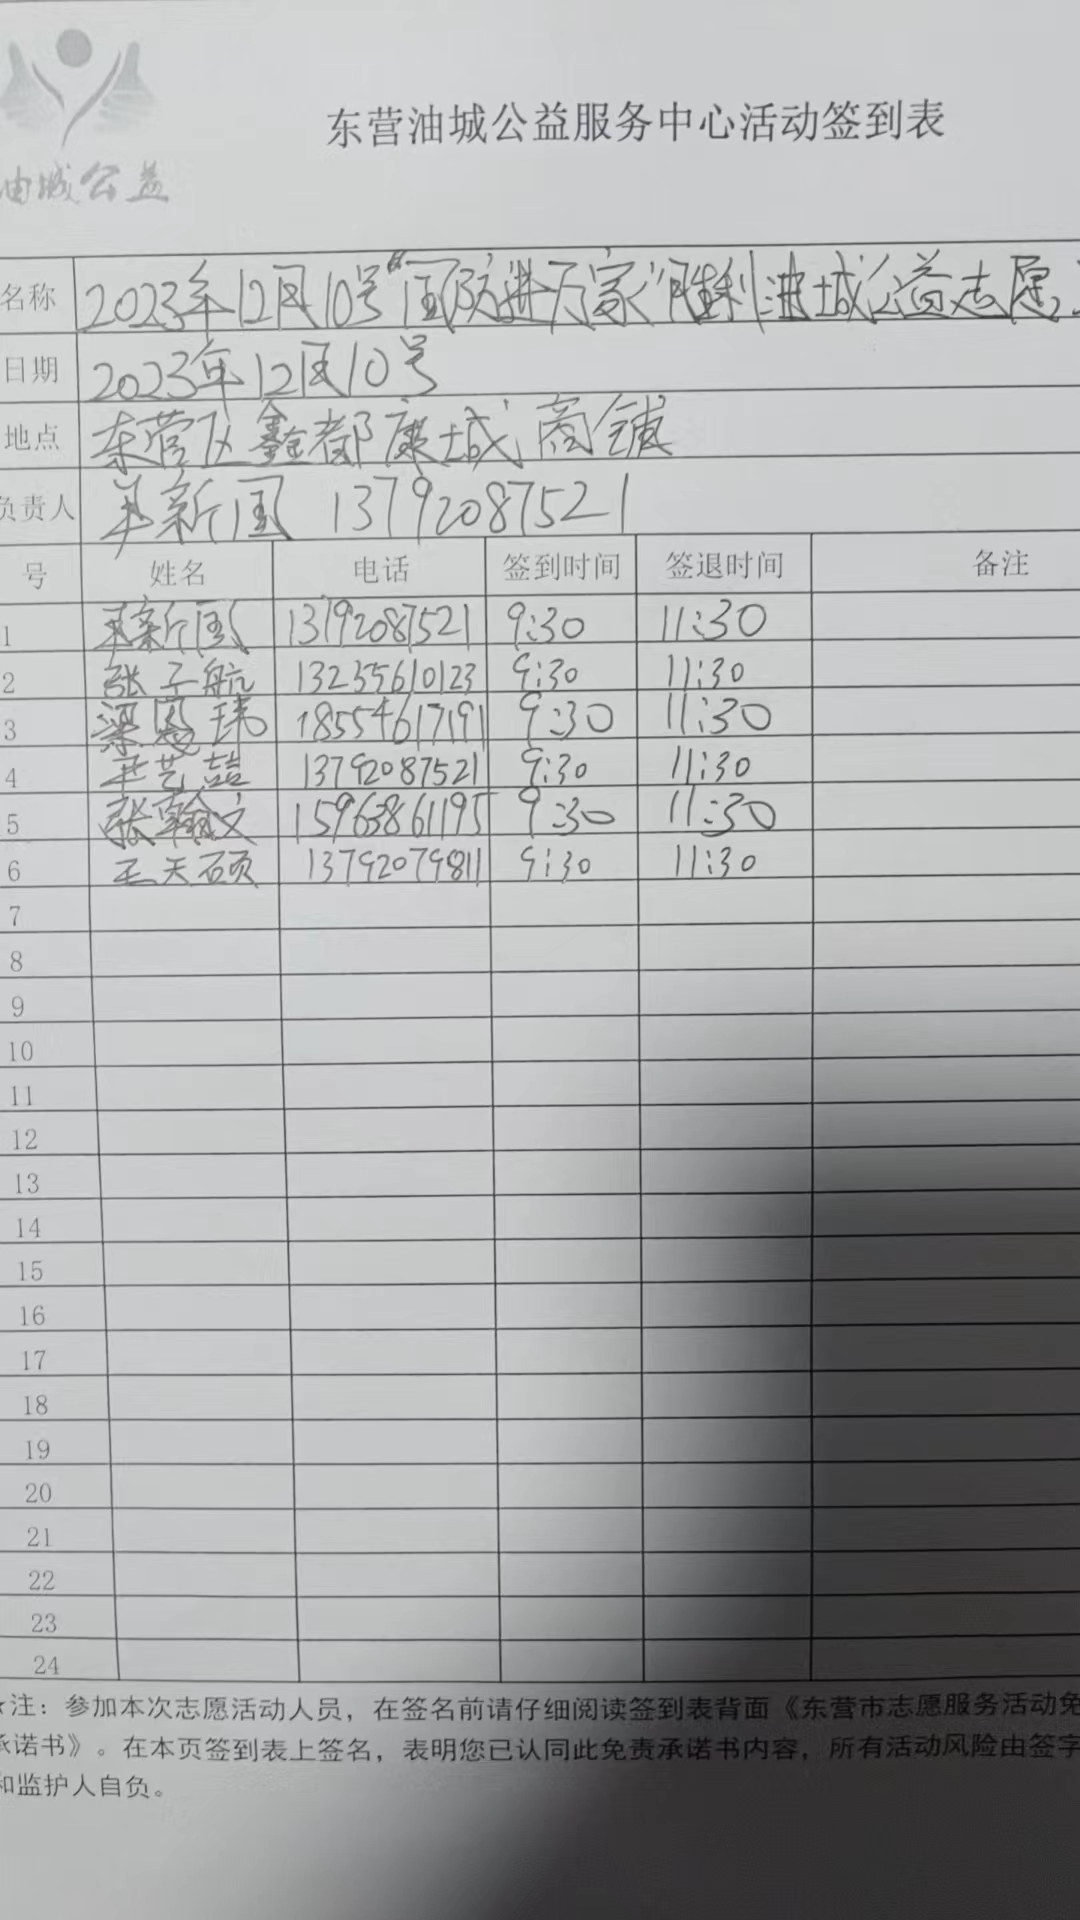 油城公益
东营油城公益服务中心活动签到表
名称 2023年12月10号"国防进万家"胜利油城公益志愿
日期 2023年12月10号
地点 东营区鑫都康城商铺
负责人 王新国 13792087521
号 姓名 电话 签到时间 签退时间 备注
1 王新国 13792087521 9:30 11:30
2 张子航 13255610123 9:30 11:30
3 梁恩玮 18554617191 9:30 11:30
4 王艺喆 13792087521 9:30 11:30
5 张翰文 15963861195 9:30 11:30
6 王天硕 13792079811 9:30 11:30
7
8
9
10
11
12
13
14
15
16
17
18
19
20
21
22
23
24
注：参加本次志愿活动人员，在签名前请仔细阅读签到表背面《东营市志愿服务活动免
承诺书》。在本页签到表上签名，表明您已认同此免责承诺书内容，所有活动风险由签字
和监护人自负。